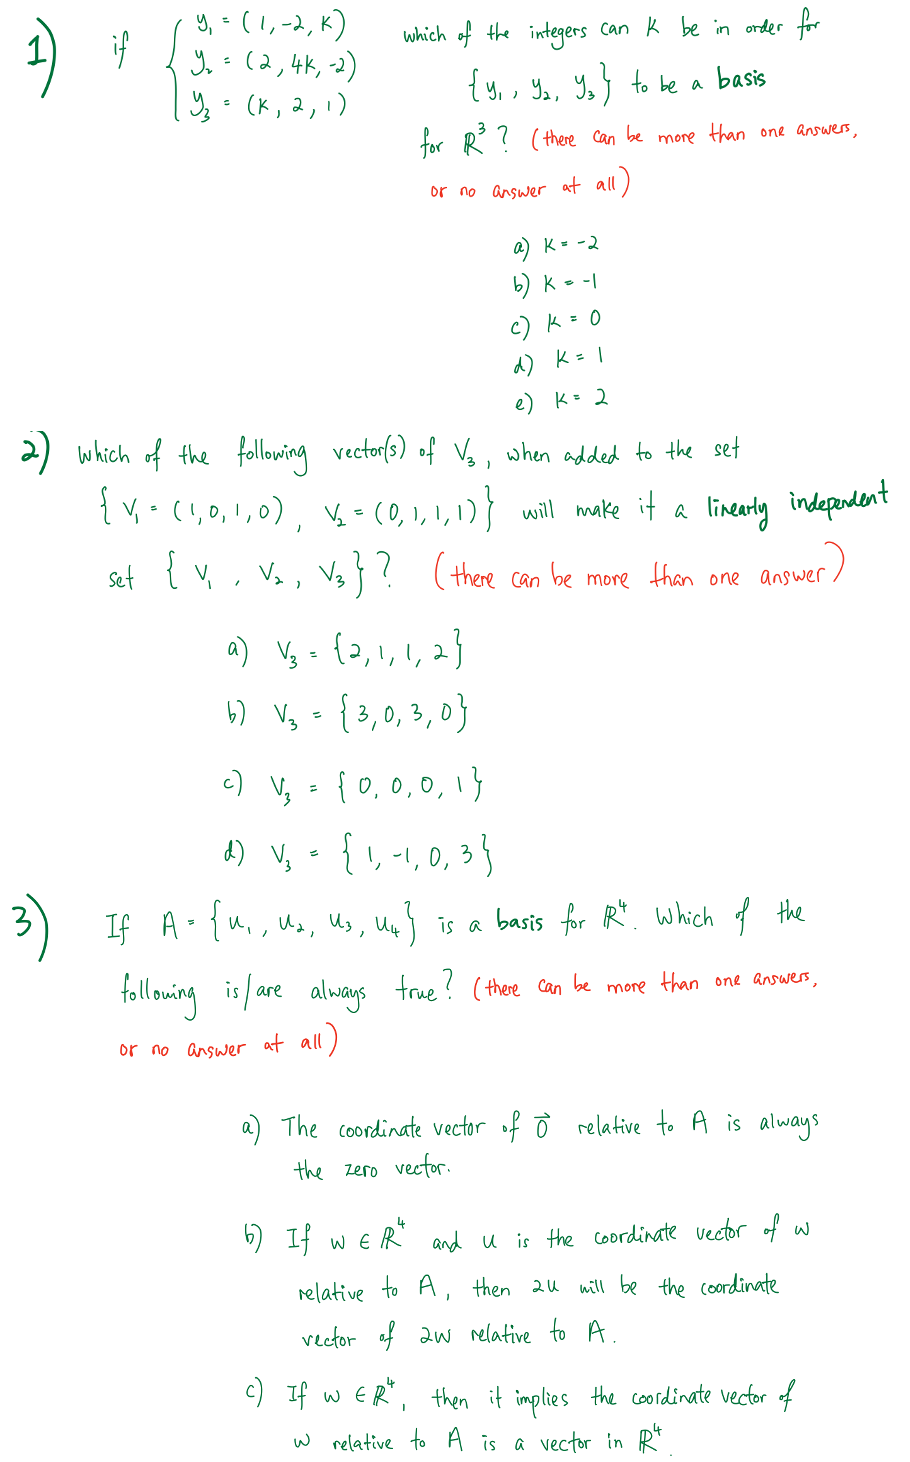 1) if { y₁ = (1, -2, K) which of the integers can K be in order for
y₂ = (2, 4K, -2) {y₁, y₂, y₃} to be a basis
y₃ = (K, 2, 1)
for ℝ³? (there can be more than one answers,
or no answer at all)
a) K = -2
b) K = -1
c) K = 0
d) K = 1
e) K = 2
2) Which of the following vector(s) of V₃, when added to the set
{V₁ = (1,0,1,0), V₂ = (0,1,1,1)} will make it a linearly independent
set {V₁, V₂, V₃}? (there can be more than one answer)
a) V₃ = {2,1,1,2}
b) V₃ = {3,0,3,0}
c) V₃ = {0,0,0,1}
d) V₃ = {1,-1,0,3}
3) If A = {u₁, u₂, u₃, u₄} is a basis for ℝ⁴. Which of the
following is/are always true? (there can be more than one answers,
or no answer at all)
a) The coordinate vector of 0⃗ relative to A is always
the zero vector.
b) If w ∈ ℝ⁴ and u is the coordinate vector of w
relative to A, then 2u will be the coordinate
vector of 2w relative to A.
c) If w ∈ ℝ⁴, then it implies the coordinate vector of
w relative to A is a vector in ℝ⁴.